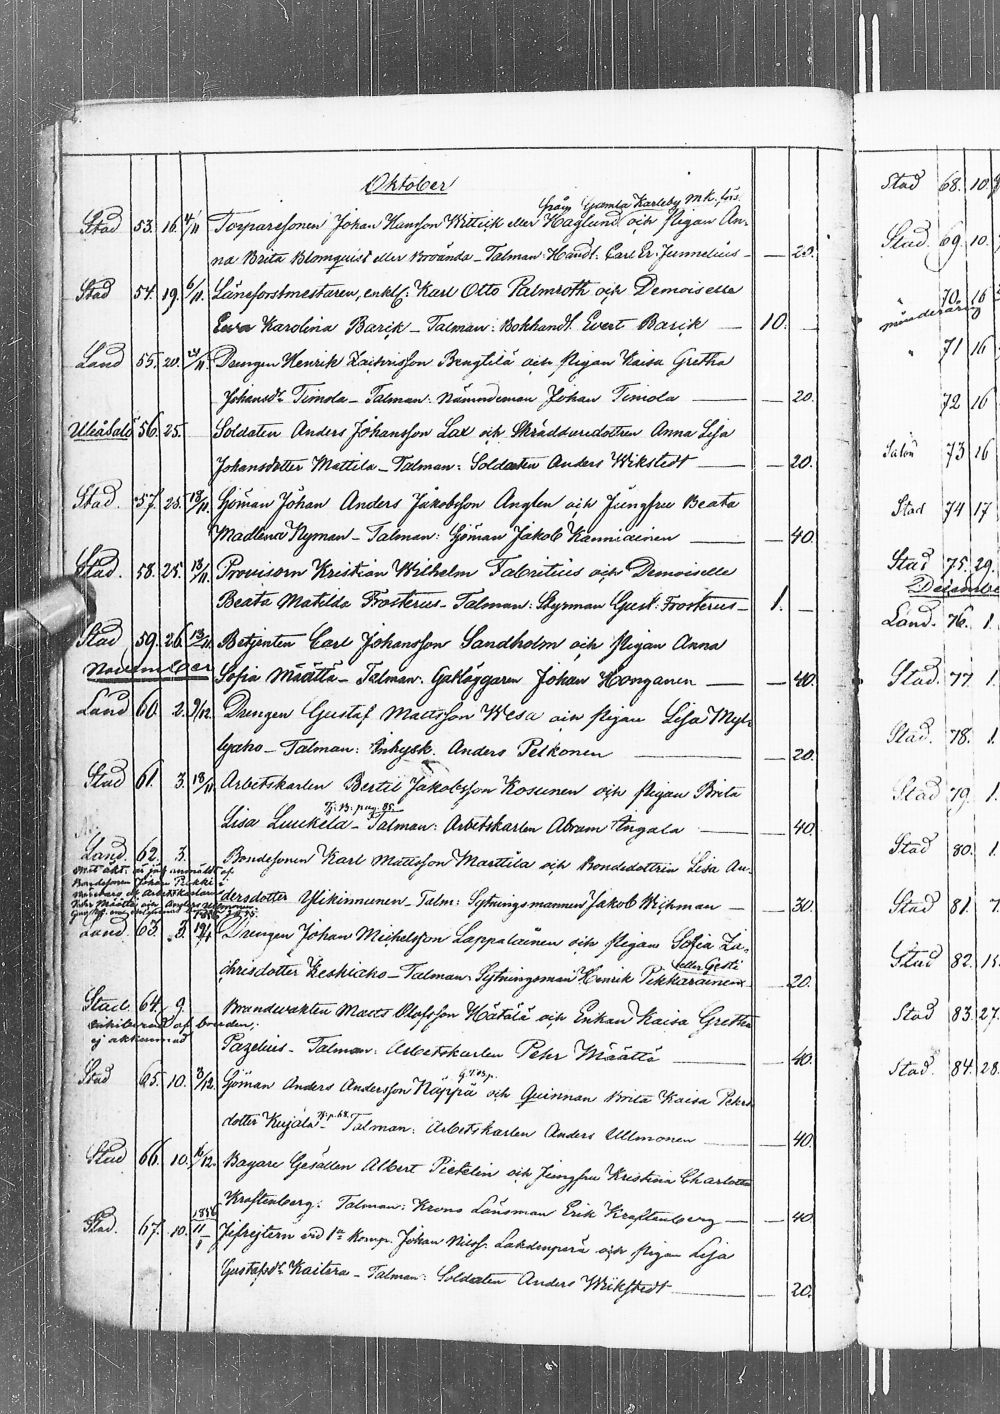 Oktober
från Gamla Karleby mk. förs.
Stad 53. 16. 4/11 Torparesonen Johan Hansson eller Haglund och Pigan An-
na Brita Blomquist eller — Talman: Handl: Carl Er. Junnelius — — 20.
Stad 54. 19. 6/11 Länsforstmestaren, enkl: Karl Otto Palmroth och Demoiselle
Eva Karolina Barck — Talman: Bokhandl. Evert Barck — 10. —
Land 55. 20. Drengen Henrik Zachrisson Bengtilä och Pigan Kaisa Gretha
Johansdr Timola — Talman: Nämndeman Johan Timola — — 20.
Uleåsalo 56. 25. Soldaten Anders Johansson Lax och Skräddaredottren Anna Lisa
Johansdotter Mattila — Talman: Soldaten Anders Wikstedt — — 20.
Stad. 57. 25. 13/11 Sjöman Johan Anders Jakobsson Anglen och Jungfru Beata
Madlena Nyman — Talman: Sjöman Jakob Kanniainen — — 40.
Stad. 58. 25. 13/11 Provisorn Kristian Wilhelm Fabritius och Demoiselle
Beata Matilda Frosterus — Talman: Styrman Gust: Frosterus — 1. —
Stad 59. 26. 13/11 Betjenten Carl Johansson Sandholm och Pigan Anna
November
Sofia Määttä — Talman: Johan Honganen — — 40.
Land 60. 2. 9/12. Drengen Gustaf Mattsson Wesa och Pigan Lisa Myl-
lyaho — Talman: Inhysk. Anders Pelkonen — — 20.
Stad 61. 3. 18/11 Arbetskarlen Bertil Jakobsson Kosunen och Pigan Brita
Lisa Luukela — Talman: Arbetskarlen Abram Ängala — — 40.
Land. 62. 3. Bondesonen Karl Mattsson Marttila och Bondedottren Lisa An-
Bondesonen Johan
dersdotter Ylikinnunen — Talm: Sytningsmannen Jakob Wichman — — 30.
Land. 63. 3. Drengen Johan Michelsson Lappalainen och Pigan Sofia Za-
eller Gesti
chrisdotter Keskiaho — Talman: Sytningsman Henrik Pikkarainen — — 20.
Stad. 64. 9. Brandvakten Matts Olofsson Hätälä och Enkan Kaisa Gretha
af bruden;
ej akkumad
Pazelius — Talman: Arbetskarlen Pehr Määttä — — 40.
Stad 65. 10. 3/12. Sjöman Anders Andersson Näppä och Quinnan Brita Kaisa Pehrs-
dotter Kujala — Talman: Arbetskarlen Anders Ullmonen — — 40.
Stad 66. 10. Bagare Gesällen Albert Pietelin och Jungfru Kristina Charlotta
Kraftenberg: Talman: Krono Länsman Erik Kraftenberg — — 40.
Stad. 67. 10. vid 1a Komp. Johan Nilss. Lakdenperä och Pigan Lisa
Gustafsdr Kaitera — Talman: Soldaten Anders Wikstedt — — 20.
Stad 68. 10.
Stad. 69. 10.
" 70. 16
" 71 16
72 16
73 16
Stad 74 17
Stad 75. 29.
December
Land. 76. 1.
Stad. 77. 1.
Stad. 78. 1.
Stad 79. 1.
Stad 80. 1.
Stad 81. 7.
Stad 82.
Stad 83. 27.
Stad. 84. 28.